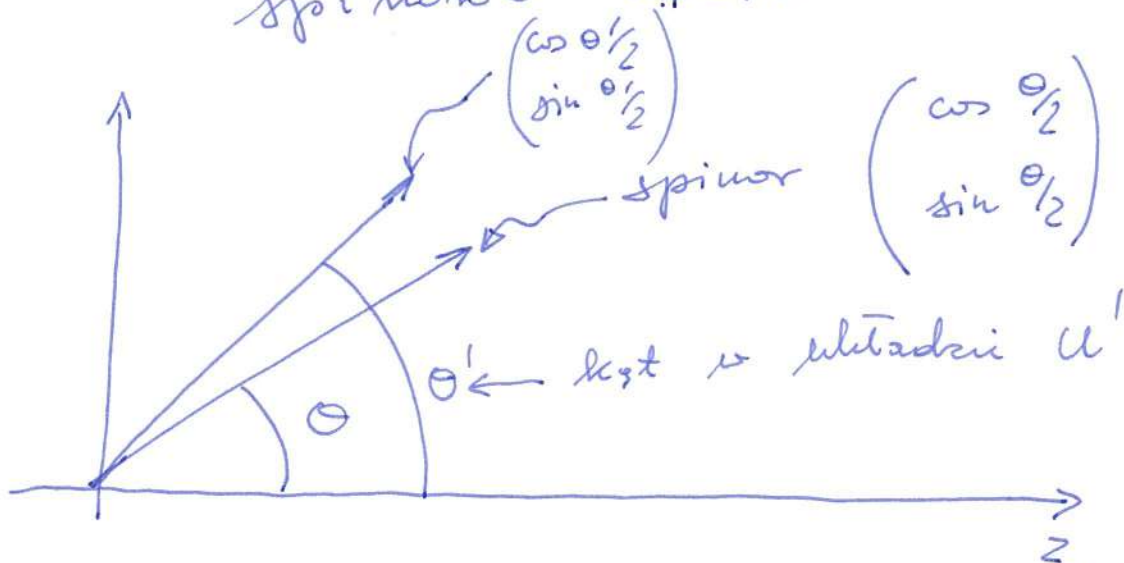 (cos θ'/2
sin θ'/2)
spinor (cos θ/2
sin θ/2)
θ' ← kąt w układzie U'
θ
z